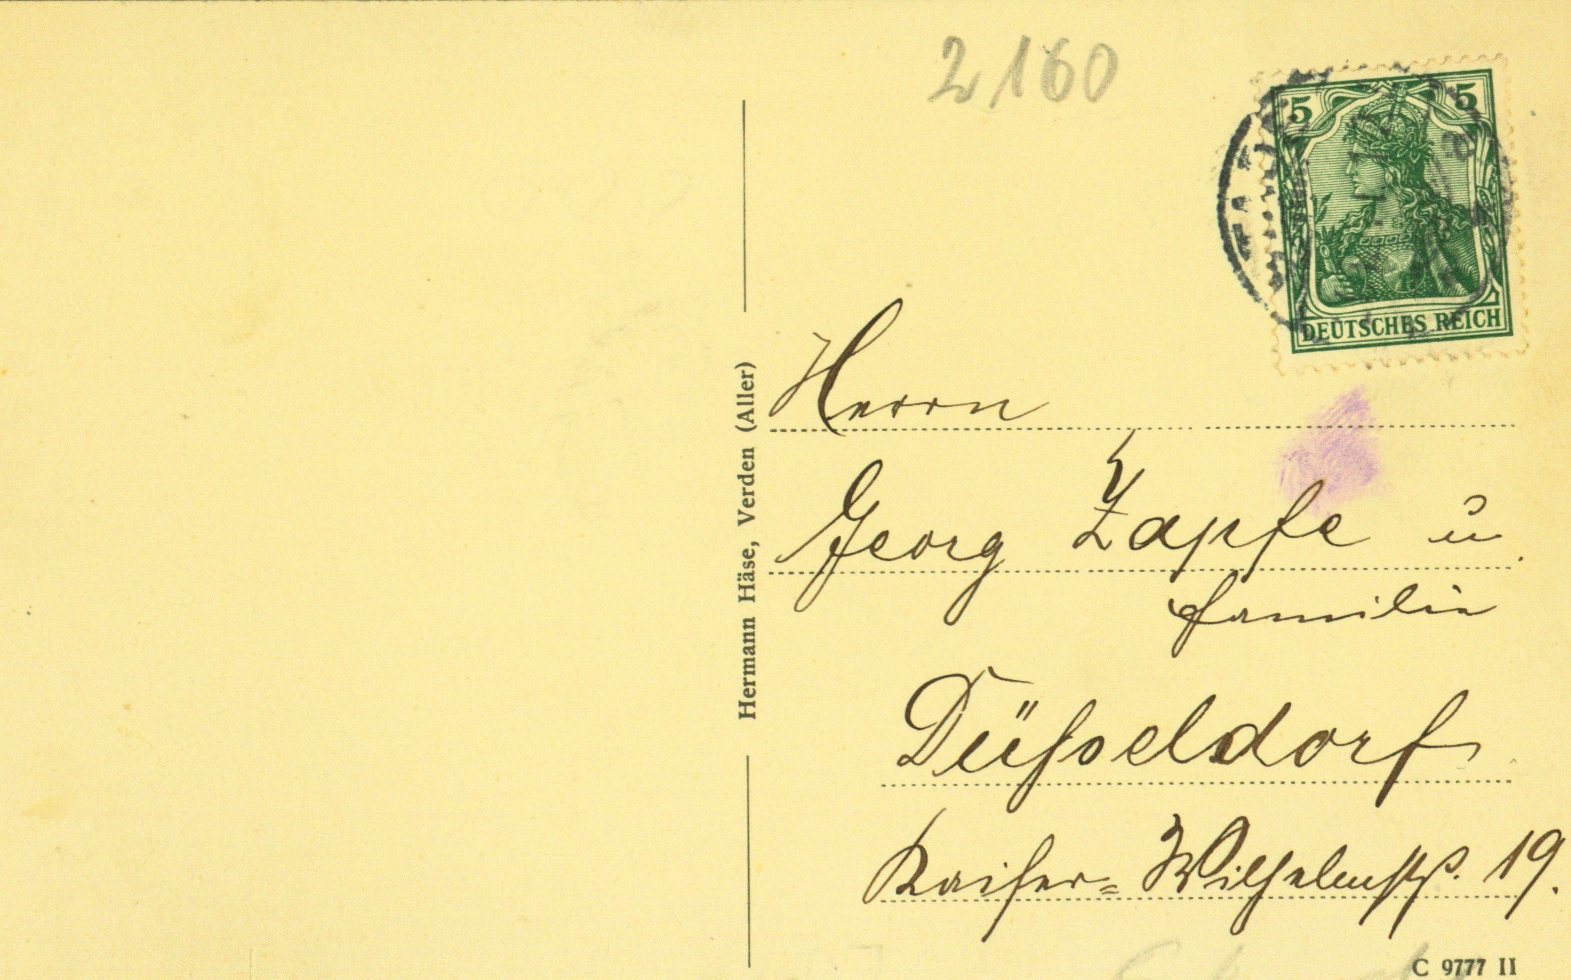 2160
5 5
DEUTSCHES REICH
Hermann Häse, Verden (Aller)
Herrn
Georg Zapfe u.
Familie
Düsseldorf
Kaiser-Wilhelmstr. 19.
C 9777 II